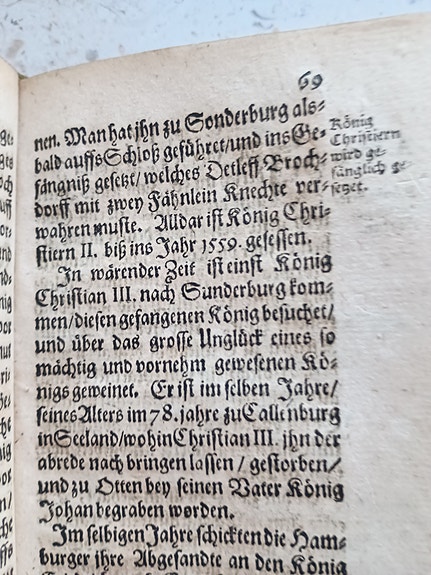 69
nen. Man hat jhn zu Sonderburg als-
bald auffs Schloß geführet/und ins Ge-
fängniß gesetzt/welches Detleff Broch-
dorff mit zwey Fähnlein Knechte ver-
wahren muste. Alldar ist König Chri-
stiern II. biß ins Jahr 1559. gesessen.
König
Christiern
wird ge-
fänglich ge-
setzet.
In wärender Zeit ist einst König
Christian III. nach Sunderburg kom-
men/diesen gefangenen König besuchet/
und über das grosse Unglück eines so
mächtig und vornehm gewesenen Kö-
nigs geweinet. Er ist im selben Jahre/
seines Alters im 78. jahre zu Callenburg
in Seeland/wohin Christian III. jhn der
abrede nach bringen lassen/gestorben/
und zu Otten bey seinen Vater König
Johan begraben worden.
Im selbigen Jahre schickten die Ham-
burger jhre Abgesandte an den König